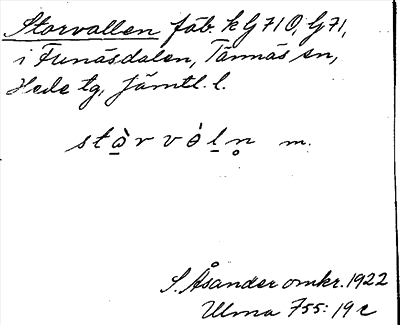 Storvallen fäb. k G 71 O, G 71,
i Funäsdalen, Tännäs sn,
Hede tg, Jämtl. l.
stạ̀r vȯ̀l̲n̥ m.
S. Åsander omkr. 1922
Ulma 755: 19 c